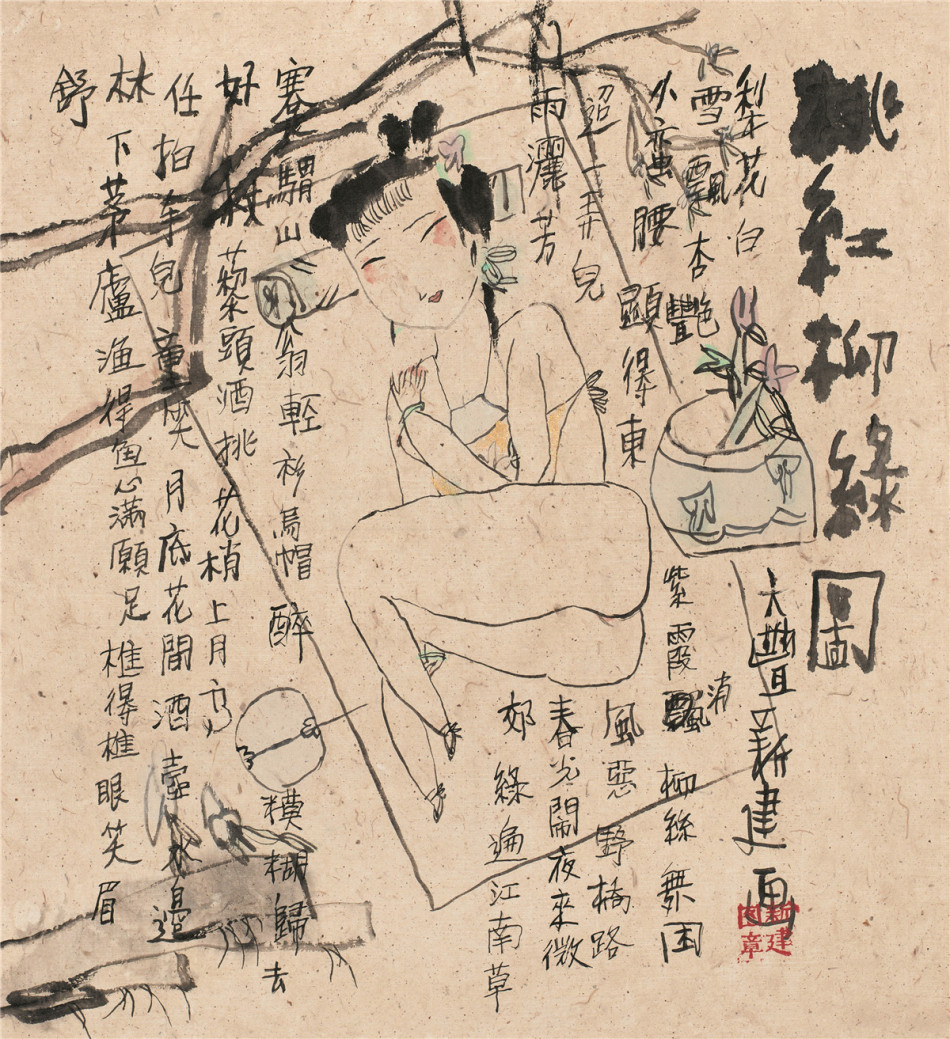 桃紅柳綠圖
大豐新建畫
梨花白
雪飄杏艷
紫霞消柳絲舞困
小蠻腰顯得東
風惡野橋路
迢一弄兒
春光鬧夜來微
雨灑芳
郊綠遍江南草
蹇驢山翁輕衫烏帽醉模糊歸去
好杖藜頭酒挑花梢上月高
任拍手兒童笑月底花間酒壺水邊
林下茅廬漁得魚心滿願足樵得樵眼笑眉
舒
新建
图章